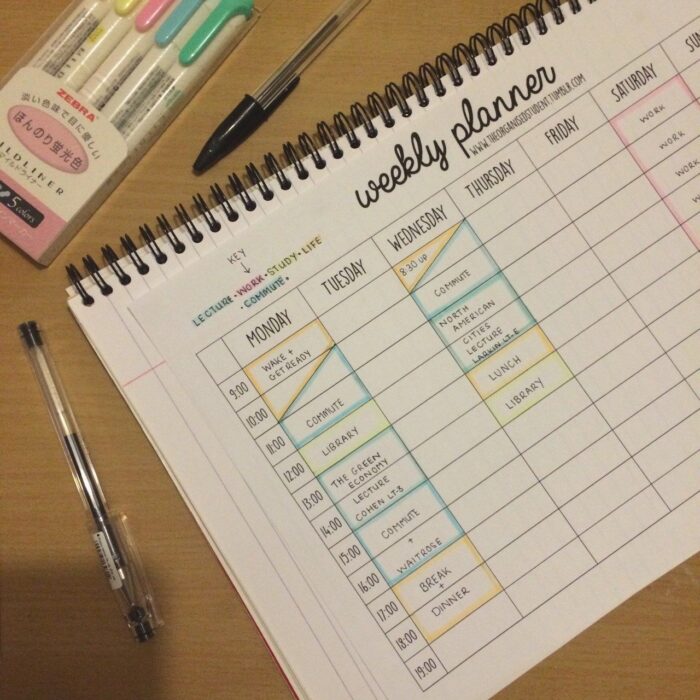 ZEBRA
淡い色味で目に優しい
ほんのり蛍光色
ILDLINER
マイルドライナー
5 colors
weekly planner
WWW.THEORGANISEDSTUDENT.TUMBLR.COM
KEY
LECTURE · WORK · STUDY · LIFE
· COMMUTE ·
MONDAY
TUESDAY
WEDNESDAY
THURSDAY
FRIDAY
SATURDAY
SUN
9:00
10:00
11:00
12:00
13:00
14:00
15:00
16:00
17:00
18:00
19:00
WAKE +
GET READY
COMMUTE
LIBRARY
THE GREEN
ECONOMY
LECTURE
COHEN LT-B
COMMUTE
+
WAITROSE
BREAK
+
DINNER
8:30 UP
COMMUTE
NORTH
AMERICAN
CITIES
LECTURE
LARKIN LT-E
LUNCH
LIBRARY
WORK
WORK
WORK